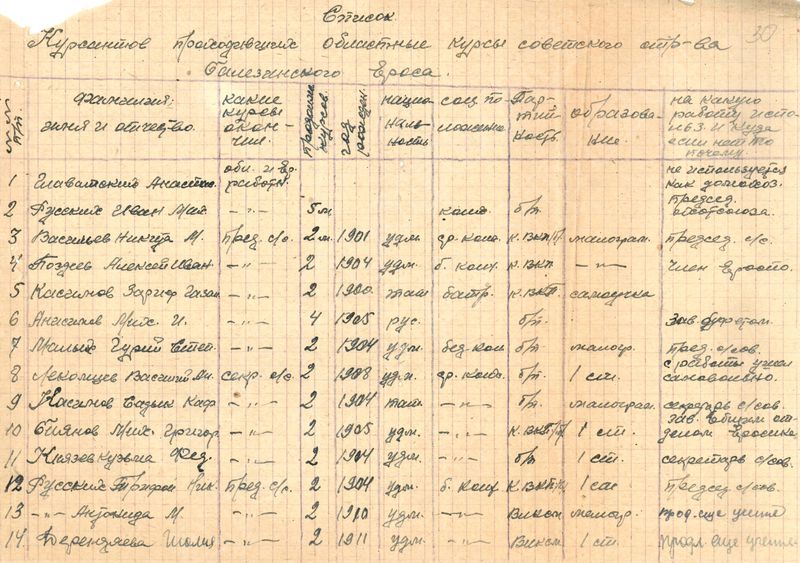 30
Список
Курсантов проходивших областные курсы советского отр-ва
Балезинского ероса.
№№ п/п. Фамилия, имя и отчество. какие курсы окончил. продолжит. курсов. год рожден. национальность соц положение Партийность. образование. на какую работу использ. и куда если нет то почему
1 Главатский Анастас. обл. и ер. работн. не используется как домохоз.
2 Русских Иван Мих. -"- 5 м. колх. б/п. председ.
3 Васильев Никита М. Пред. с/с. 2 м. 1901 удм. ср. колх. к. ВКП/б малограм. председ. с/с.
4 Поздеев Алексей Иван. -"- 2 1904 удм. б. колх. к. ВКП -"- член
5 Касимов Зариф Газом. -"- 2 1900 тат батр. к. ВКП. самоучка
6 Анасимов Мих. И. -"- 4 1905 рус. б/п. зав. буфетом.
7 Малых Гурий Степ -"- 2 1904 удм. бед. кол б/п малогр. пред. с/сов.
8 Лекомцев Василий Ми. секр. с/с. 2 1908 удм. ср. колх. б/п. 1 ст. с работы ушел самовольно.
9 Касимов Садык Каф. -"- 2 1904 тат -"- б/п. малограм. секретарь с/сов.
10 Биянов Мих. Григор. -"- 2 1905 удм. -"- к ВКП/б 1 ст. зав. общим отделом еросика
11 Князев Кузьма Фед. -"- 2 1904 удм. -"- б/п 1 ст. секретарь с/сов.
12 Русских Трофим Ник. Пред. с/с. 2 1904 удм. б. колх к ВКП/б 1 ст председ с/сов.
13 -"- Антонида М -"- 2 1910 удм. -"- Влксм малогр. прод. еще учение
14. Берендяева Юлия -"- 2 1911 удм. -"- Влксм 1 ст. продл. еще учение